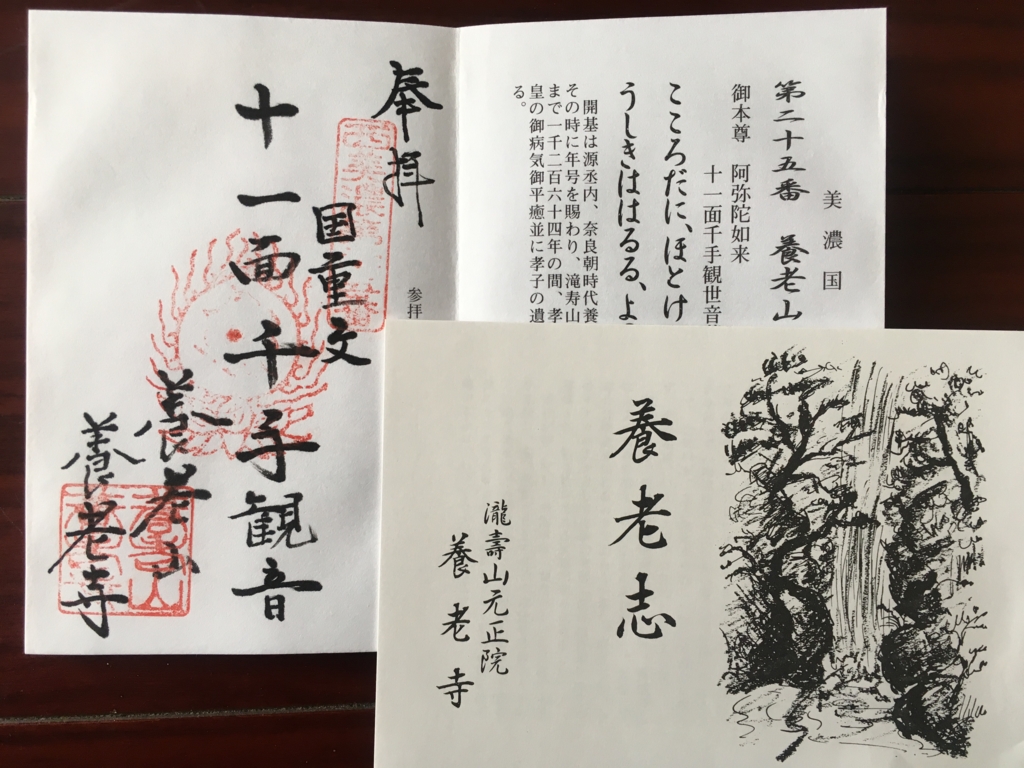 美濃国
第二十五番 養老山
御本尊 阿弥陀如来
十一面千手観世音
こころだに、ほとけ
うしきははるる、よ
開基は源丞内、奈良朝時代養
その時に年号を賜わり、滝寿山
まで一千二百六十四年の間、孝
皇の御病気御平癒並に孝子の遺
る。
奉拝
参拝
国重文
十一面千手観音
養老山
養老寺
養老志
瀧壽山元正院
養老寺